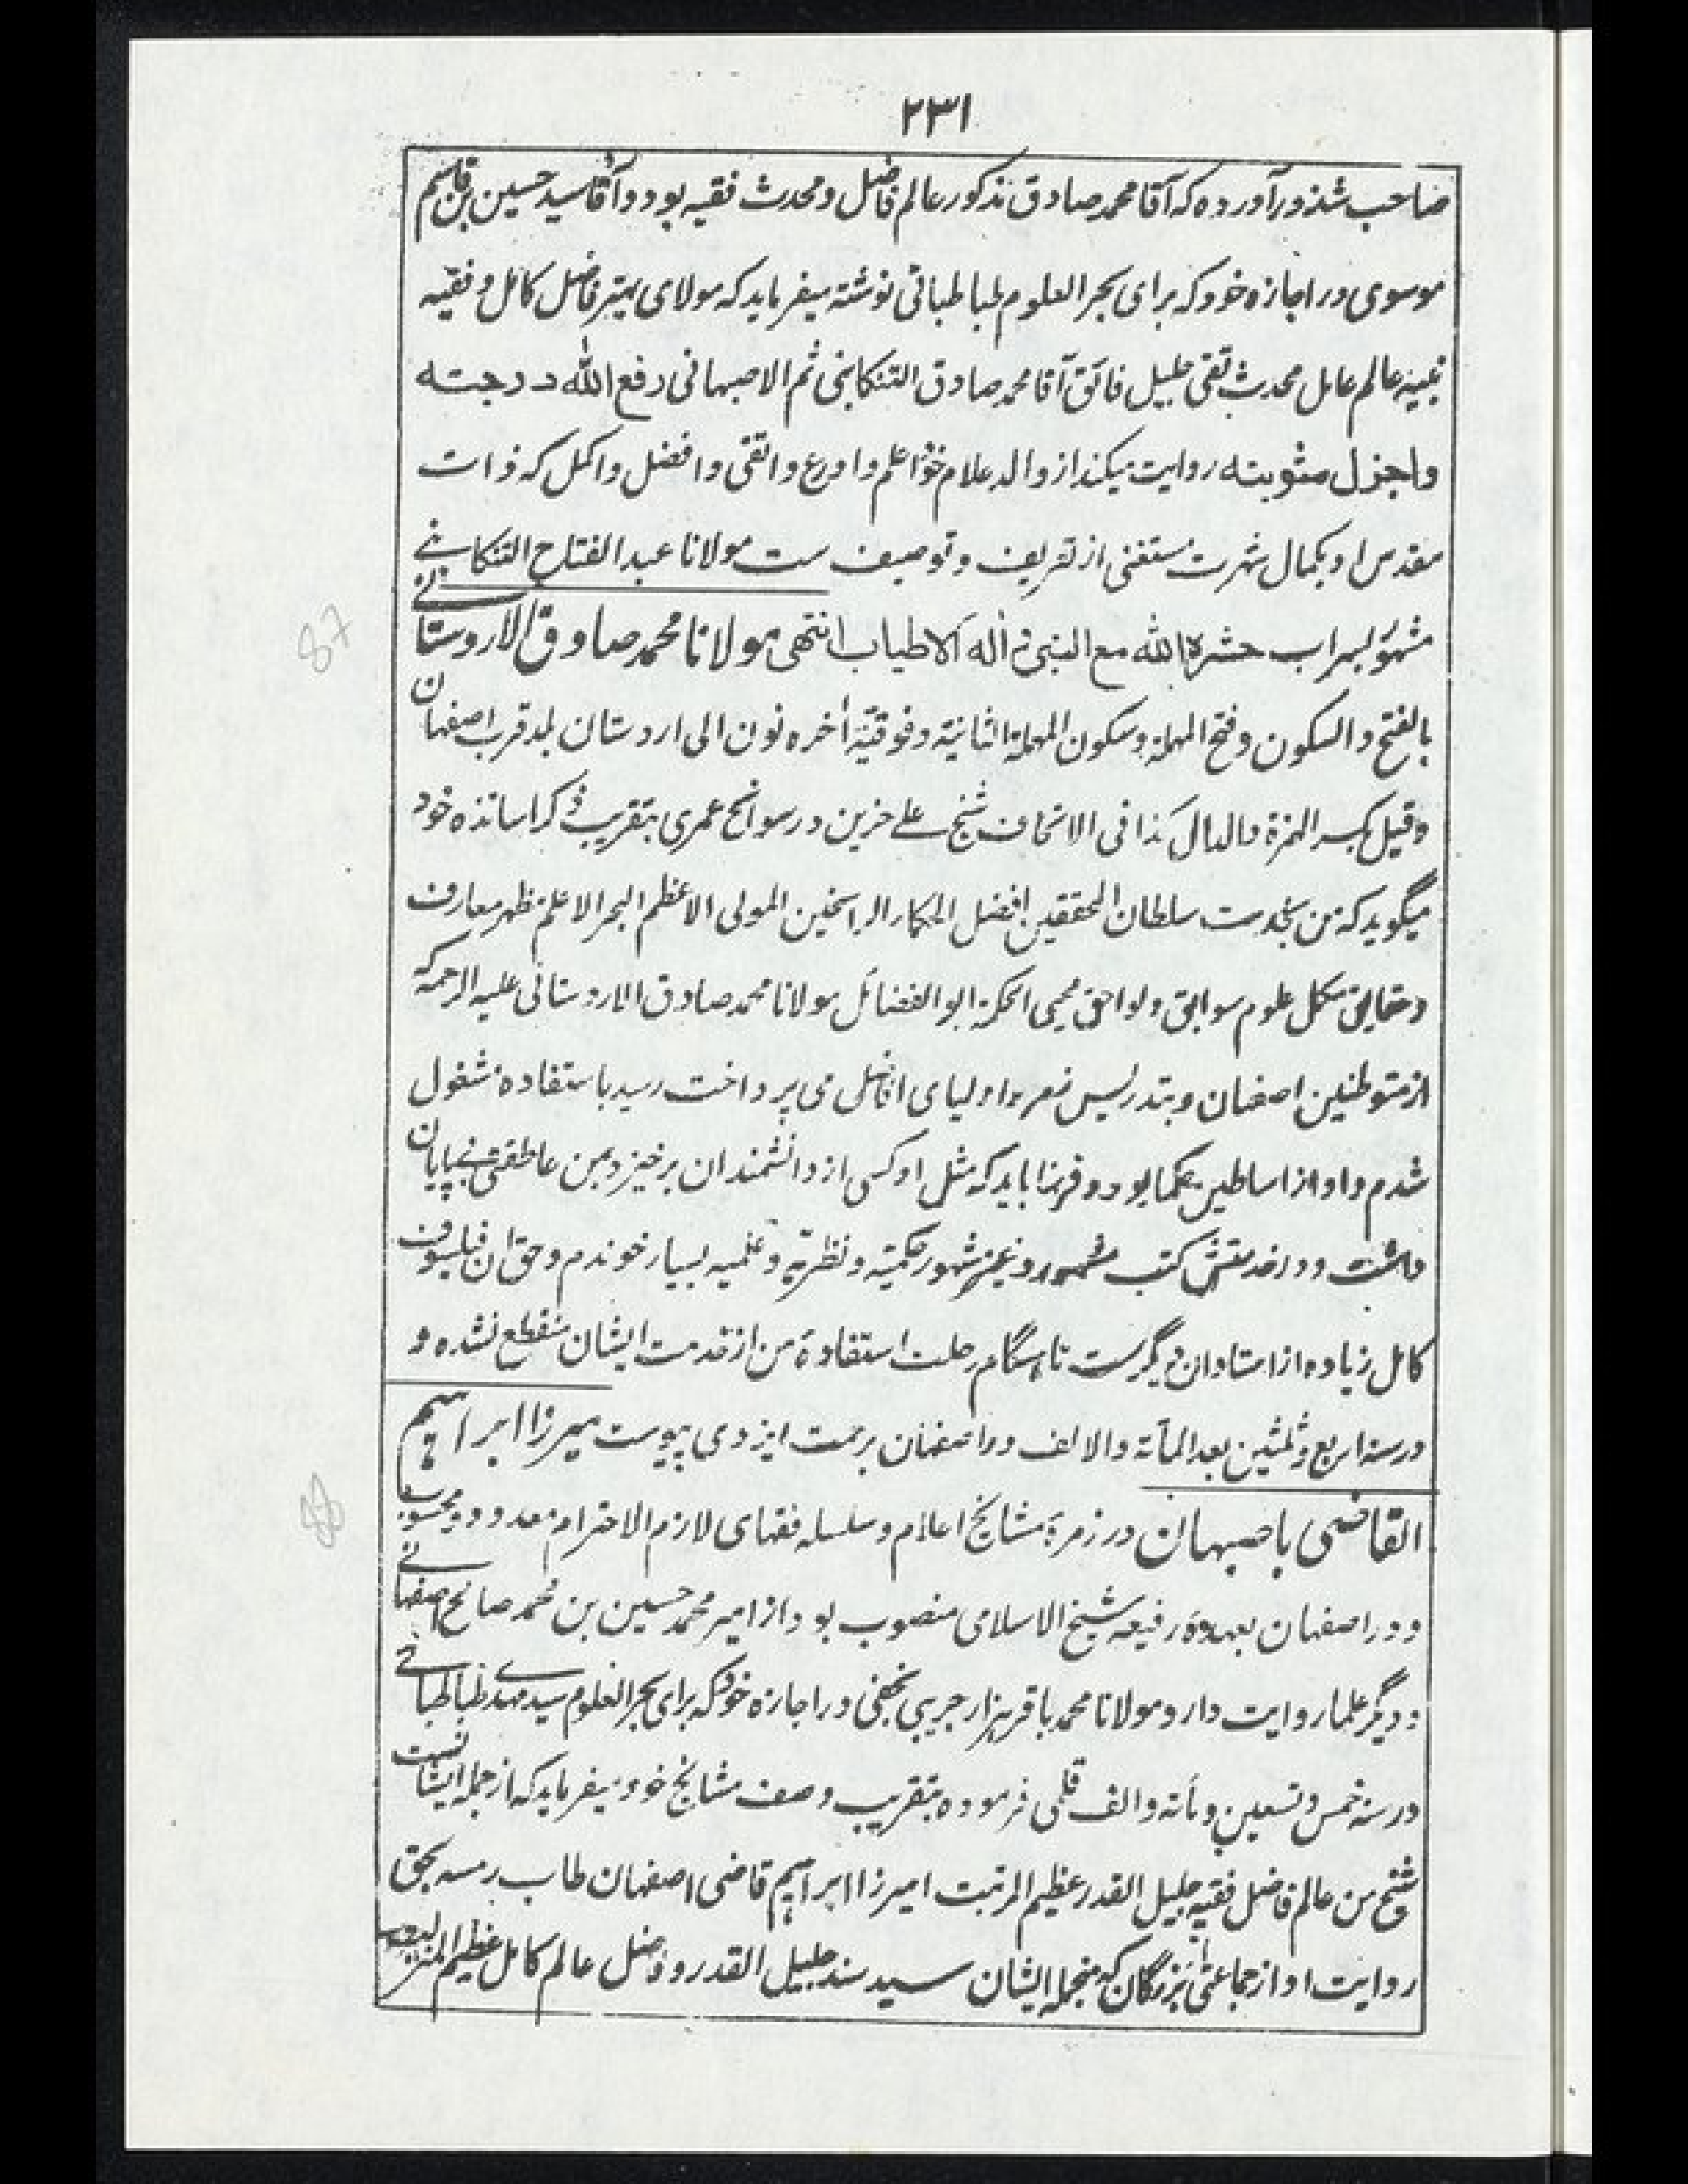 ۲۳۱
صاحب شذور آورده که آقا محمد صادق مذکور عالم فاضل و محدث فقیه بود و آقا سید حسین بن قاسم
موسوی در اجازه خود که برای بحر العلوم طباطبائی نوشته میفرماید که مولای فاضل کامل و فقیه
نبیه عالم عامل محدث تقی جلیل فائق آقا محمد صادق التنکابنی ثم الاصبهانی رفع الله درجته
واجزل مثوبته روایت میکند از والد علام خود اعلم و اورع و اتقی و افضل و اکمل که ذات
مقدس او بکمال شهرت مستغنی از تعریف و توصیف ست مولانا عبد الفتاح التنکابنے
مشهور بسراب حشره الله مع النبی و اله الاطیاب انتهی مولانا محمد صادق الاردستانے
بالفتح و السکون و فتح المهملة و سکون المهملة الثانیة و فوقیة اخره نون الی اردستان بلد قرب اصفهان
وقیل بکسر الهمزة والدال کذا فی الاتحاف شیخ علے حزین در سوانح عمری بتقریب ذکر اساتذه خود
میگوید که من بخدمت سلطان المحققین افضل الحکماء الراسخین المولی الاعظم البحر الاعلم مظهر معارف
وحقایق مکمل علوم سوابق و لواحق محیی الحکمة ابو الفضائل مولانا محمد صادق الاردستانی علیه الرحمه که
از متوطنین اصفهان و بتدریس اولیای افاضل می پرداخت رسید باستفاده مشغول
شدم و او از اساطیر حکما بود و قرنها باید که مثل او کسی از دانشمندان برخیزد بمن عاطفتی بےپایان
داشت و در خدمتش کتب مشهوره و غیر مشهور حکمیه و نظریه و علمیه بسیار خوندم و حق ان فیلسوف
کامل زیاده از استادان دیگر ست تا هنگام رحلت استفادهٔ من از خدمت ایشان منقطع نشده و
در سنه اربع و ثلثین بعد المأته والالف در اصفهان برحمت ایزدی پیوست میرزا ابراهیم
القاضی باصبهان در زمرهٔ مشایخ اعلام و سلسله فقهای لازم الاحترام معدود و محسوب
و در اصفهان بعهدهٔ رفیعه شیخ الاسلامی منصوب بود از امیر محمد حسین بن محمد صالح اصفهانے
و دیگر علما روایت دارد مولانا محمد باقر هزار جریبی نجفی در اجازه خود که برای بحر العلوم سید مهدے طباطبائے
در سنه خمس و تسعین و مأته و الف قلمی فرموده بتقریب وصف مشایخ خود میفرماید که از جمله ایشانست
شیخ من عالم فاضل فقیه جلیل القدر عظیم المرتبت امیرزا ابراهیم قاضی اصفهان طاب رمسه بحق
روایت او از جماعتی بزرگان که منجمله ایشان سید سند جلیل القدر و فاضل عالم کامل عظیم المنزلت
87
88